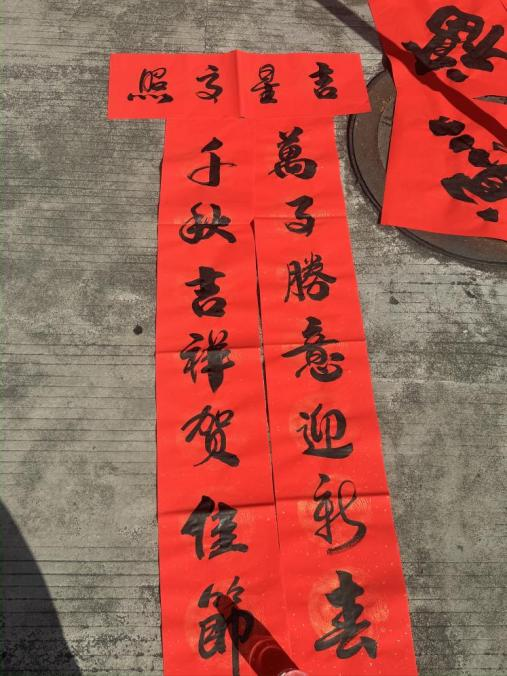 吉星高照
萬事勝意迎新春
千秋吉祥贺佳節